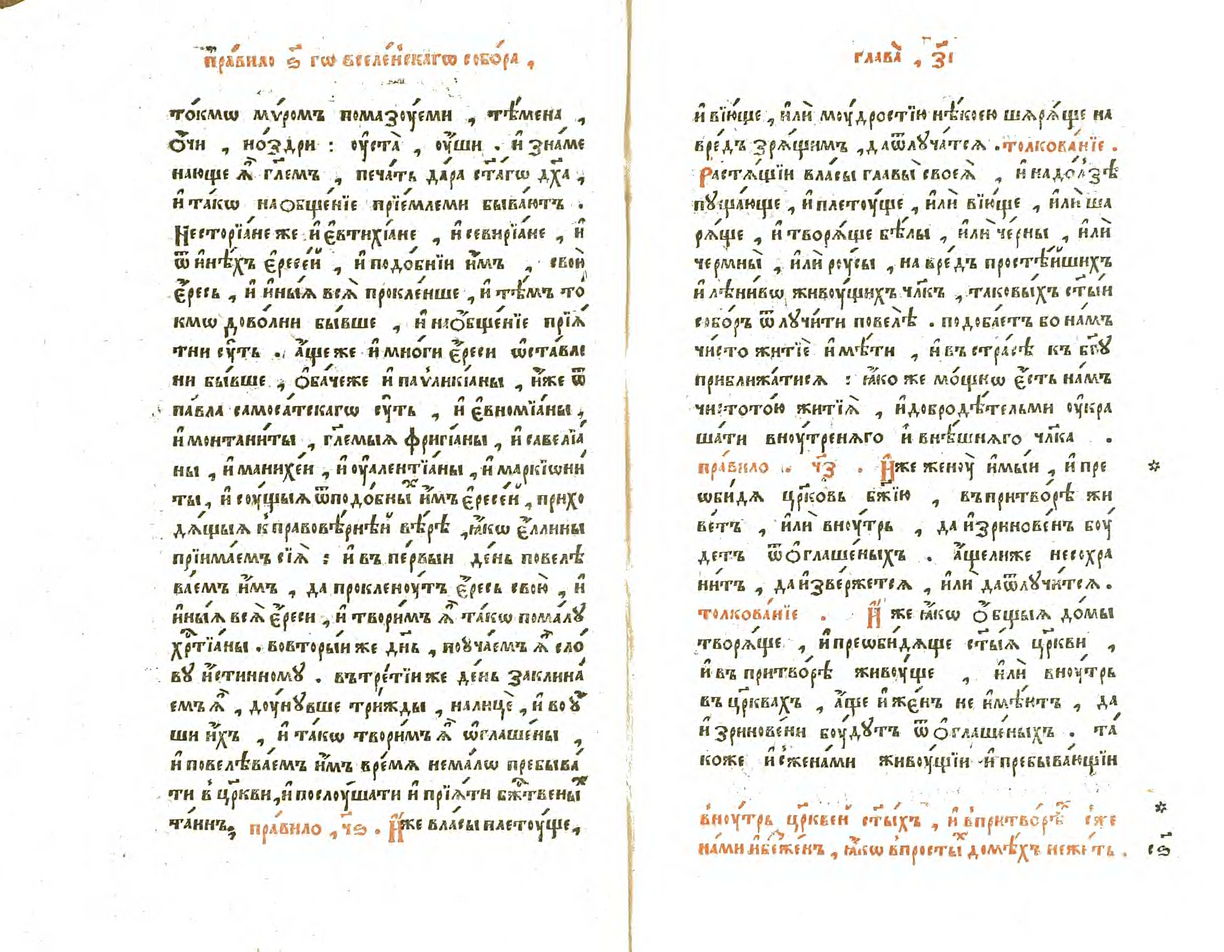 пра́вило ѕ҃ гѡ вселе́нскагѡ собо́ра ,
то́кмѡ мѵ́ромъ помазу́еми , тѣ́мена ,
ѻ҆́чи , но́здри : оуста̀ , оу҆́ши . и҆ зна́ме
нающе ѧ҆̀ гл҃емъ , печа́ть да́ра ст҃а́гѡ дх҃а ,
и҆ та́кѡ на ѻ҆бще́нїе прїе́млеми быва́ютъ .
Несторїа́не же и҆ є҆втихїа́не , и҆ севирїа́не , и҆
ѿ и҆нѣ́хъ є҆ресе́й , и҆ подо́бнїи и҆̀мъ , свою̀
є҆́ресь , и҆ и҆ны́ѧ всѧ̀ прокле́нше , и҆ тѣ́мъ то́
кмѡ дово́лни бы́вше , и҆ на ѻ҆бще́нїе прїѧ́
тни су́ть . а҆́ще же и҆ мно́ги є҆́реси ѡ҆ста́вле
ни бы́вше , ѻ҆ба́че же и҆ паѵликїа́ны , и҆́же ѿ
па́вла самоса́тскагѡ су́ть , и҆ є҆вномїа́ны ,
и҆ монтани́ты , гл҃емыѧ фриги́аны , и҆ савелїа́
ны , и҆ манихе́и , и҆ оуалентїа́ны , и҆ маркїѡни
ты , и҆ су́щыѧ ѿ подо́бныⷯ и҆̀мъ є҆ресе́й , прихо
дѧ́щыѧ к правовѣ́рнѣй вѣ́рѣ , ꙗ҆́кѡ є҆́ллины
прїима́емъ сїѧ̀ : и҆ в пе́рвыи де́нь повелѣ
ва́емъ и҆̀мъ , да прокленоу́тъ є҆́ресь свою̀ , и҆
и҆ны́ѧ всѧ̀ є҆́реси , и҆ твори́мъ ѧ҆̀ та́кѡ пома́лу
хрⷭ҇тїа́ны . во вторы́и же дн҃ь , поуча́емъ ѧ҆̀ сло́
ву и҆́стинному . въ тре́тїи же де́нь заклина́
емъ ѧ҆̀ , доу́нувше три́жды , на лицѐ , и҆ во оу҆́
ши и҆́хъ , и҆ та́кѡ твори́мъ ѧ҆̀ ѡ҆глаше́ны ,
и҆ повелѣва́емъ и҆̀мъ вре́мѧ нема́лѡ пребыва́
ти в цр҃кви , и҆ послоу́шати и҆ прїѧ́ти бж҃твены́ⷯ
та́инъ , пра́вило , ч҃ѕ . И҆́же власы̀ плетоу́ще ,
глава̀ , з҃і
и҆ вїю́ще , и҆лѝ моу́дростїю нѣ́коею шѧрѧ́ще на
вре́дъ зрѧ́щимъ , да ѿлуча́тсѧ . толкова́нїе .
Растѧ́щїи власы̀ главы̀ своеѧ̀ , и҆ на до́лзѣ
пуща́юще , и҆ плетоу́ще , и҆лѝ вїю́ще , и҆лѝ ша
рѧ́ще , и҆ творѧ́ще бѣ́лы , и҆лѝ че́рны , и҆лѝ
че́рмны , и҆лѝ роу́сы , на вре́дъ простѣ́йшихъ
и҆ лѣни́вѡ живоу́щихъ чл҃къ , таковы́хъ ст҃ы́и
собо́ръ ѿлучи́ти повелѣ̀ . подоба́етъ бо на́мъ
чи́сто житїѐ и҆мѣ́ти , и҆ въ стра́сѣ къ бг҃у
приближа́тисѧ : ꙗ҆́ко же мо́щнѡ є҆́сть на́мъ
чистото́ю житїѧ̀ , и҆ добродѣ́тельми оу҆кра
ша́ти вноу́тренѧго и҆ внѣ́шнѧго чл҃ка .
пра́вило . ч҃з . И҆́же женоу̀ и҆мы́и , и҆ пре
ѡби́дѧ цр҃ковь бж҃їю , въ притво́рѣ жи
ве́тъ , и҆лѝ вноу́трь , да и҆зринове́нъ боу́
детъ ѿ ѻ҆глаше́ныхъ . а҆́ще ли же несохра
ни́тъ , да и҆зве́ржетсѧ , и҆ли да ѿлучи́тсѧ .
толкова́нїе . И҆́же ꙗ҆́кѡ ѻ҆́бщыѧ до́мы
творѧ́ще , и҆ преѡби́дѧще ст҃ы́ѧ цр҃кви ,
и҆ в притво́рѣ живоу́ще , и҆лѝ вноу́трь
въ цр҃квахъ , а҆́ще и҆ же́нъ не и҆мѣ́ютъ , да
и҆зринове́ни боу́дутъ ѿ ѻ҆глаше́ныхъ . та́
коже и҆ с жена́ми живоу́щїи и҆ пребыва́ющїи
вноу́трь цр҃кве́й ст҃ы́хъ , и҆ в притво́рѣⷯ с же
нами и҆ без же́нъ , ꙗ҆́кѡ в просты́ⷯ домѣ́хъ не жи́ть .
сѕ҃